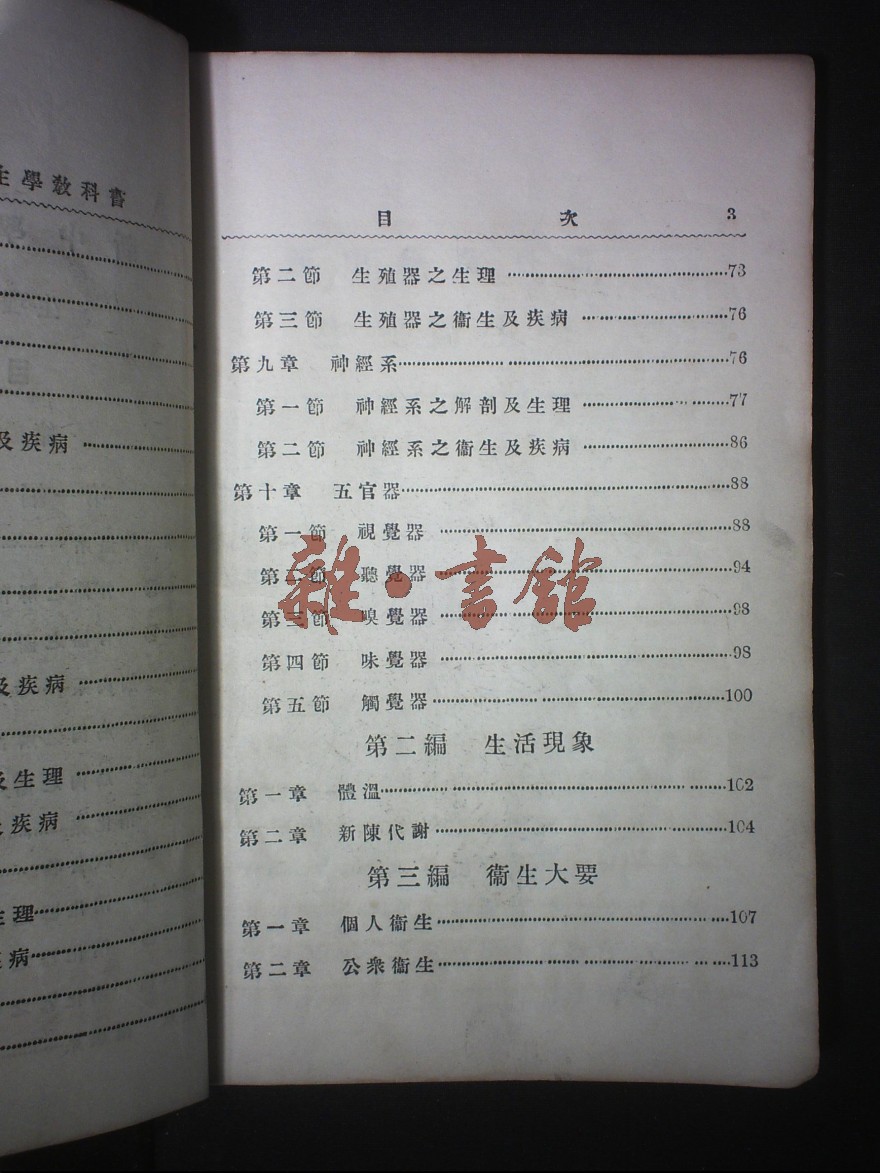 生學教科書
及疾病
及疾病
及生理
疾病
生理
病
目次 3
第二節 生殖器之生理 73
第三節 生殖器之衞生及疾病 76
第九章 神經系 76
第一節 神經系之解剖及生理 77
第二節 神經系之衞生及疾病 86
第十章 五官器 88
第一節 視覺器 88
第二節 聽覺器 94
第三節 嗅覺器 98
第四節 味覺器 98
第五節 觸覺器 100
第二編 生活現象
第一章 體溫 102
第二章 新陳代謝 104
第三編 衞生大要
第一章 個人衞生 107
第二章 公衆衞生 113
雜·書館